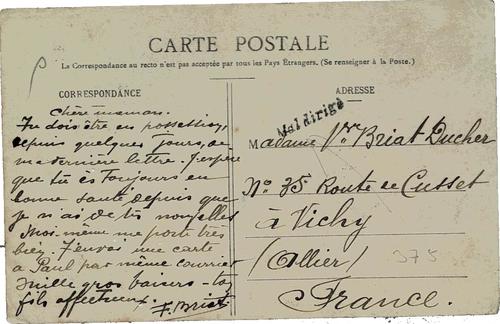 CARTE POSTALE
La Correspondance au recto n'est pas acceptée par tous les Pays Étrangers. (Se renseigner à la Poste.)
CORRESPONDANCE
chère maman.
Tu dois être en possession,
depuis quelques jours, de
ma dernière lettre. J'espère
que tu es Toujours en
bonne santé depuis que
je n'ai de tes nouvelles
Moi-même me porte très
bien. J'envoi une carte
à Paul par même courrier
Mille gros baisers - ton
fils affectueux. F. Briat
ADRESSE
Mal dirigé
Madame Vve Briat Ducher
No 35 Route de Cusset
à Vichy
(Allier) 375
France.